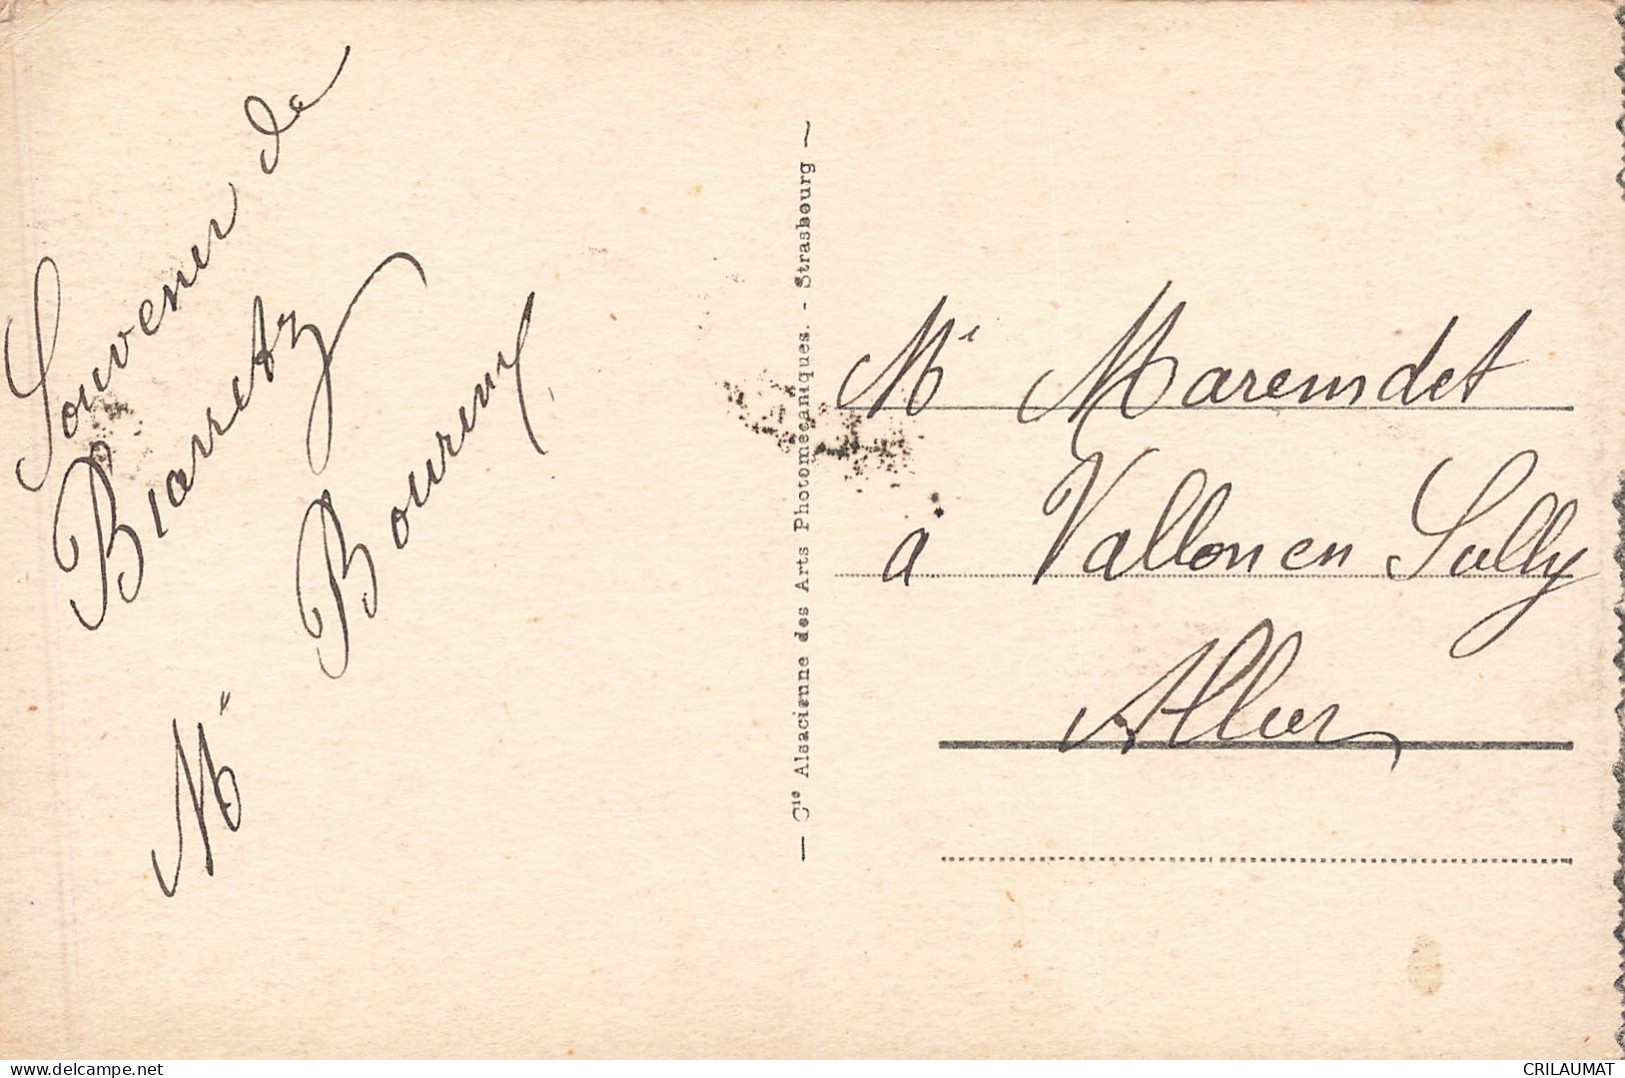 Souvenir de
Biarritz
M
— Cie Alsacienne des Arts Photomécaniques. - Strasbourg —
Mr Maremdet
a Vallon en Sully
Allier
delcampe.net
CRILAUMAT